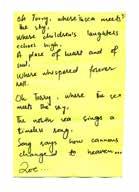 Oh Torry, where is sea meets
the sky,
Where children's laughters
echoes high,
A place of heart and of
soul,
Where whispered forever
roll.
Oh Torry, where the sea
meets the sky,
The north sea sings a
timeless song,
Song says how cannons
changed to heaven...
Zoe...